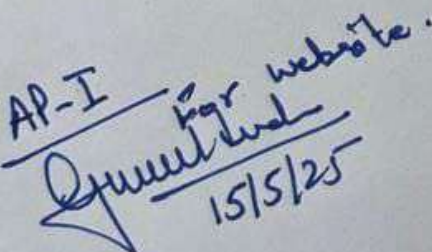 AP-I
For website.
15/5/25